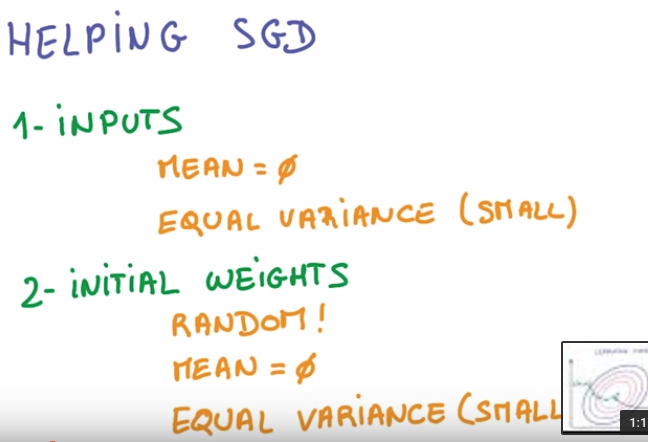 HELPING SGD
1- INPUTS
MEAN = ∅
EQUAL VARIANCE (SMALL)
2- INITIAL WEIGHTS
RANDOM!
MEAN = ∅
EQUAL VARIANCE (SMALL
1:1